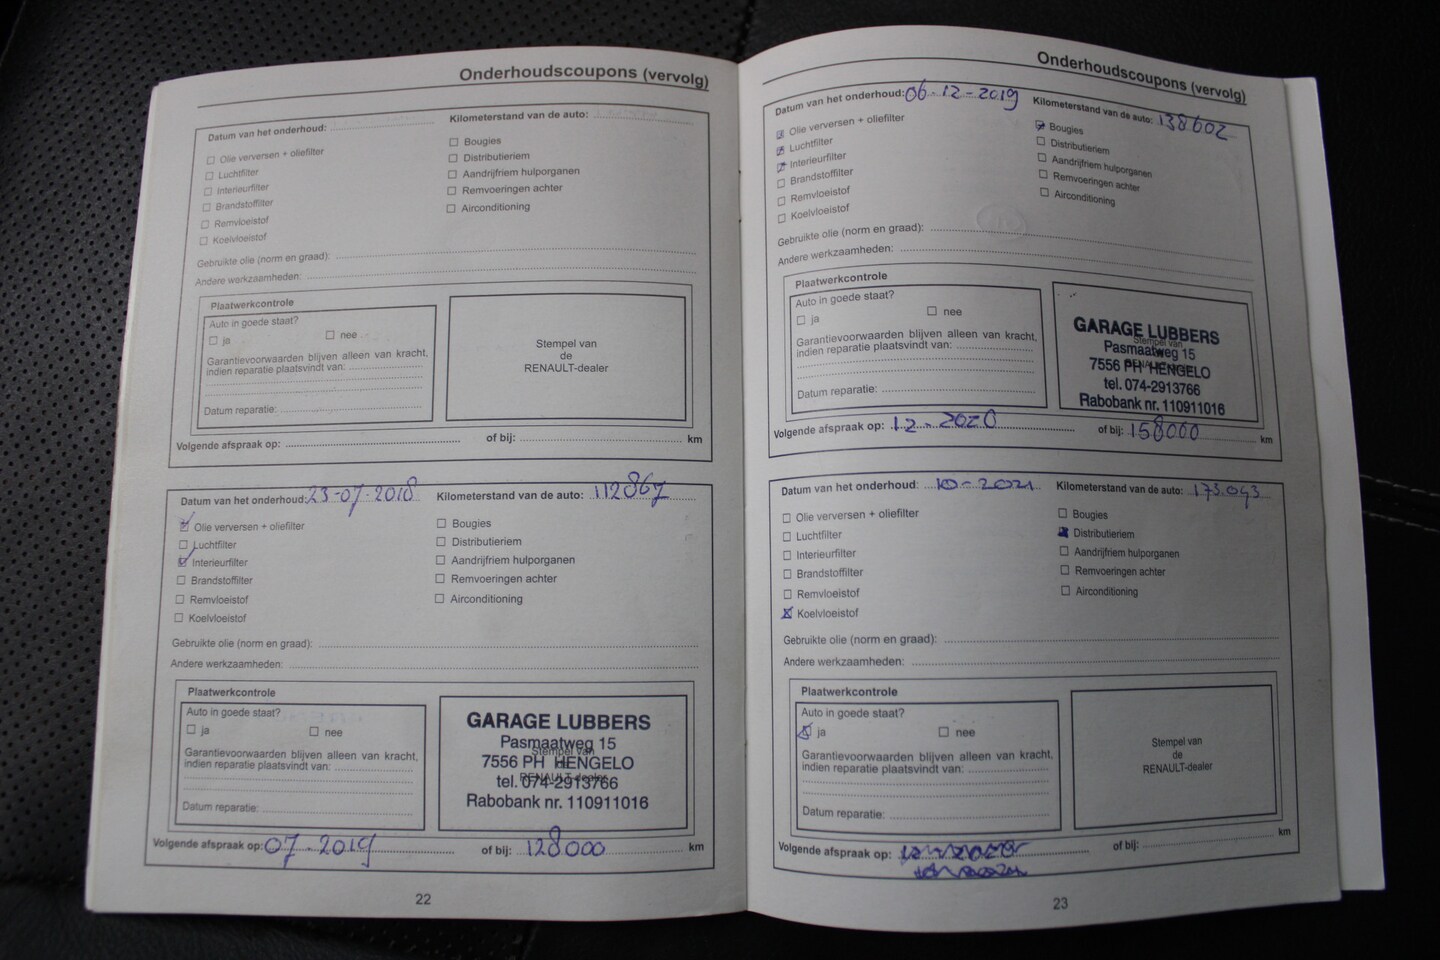 Onderhoudscoupons (vervolg)
Datum van het onderhoud:
Kilometerstand van de auto:
Olie verversen + oliefilter
Luchtfilter
Interieurfilter
Brandstoffilter
Remvloeistof
Koelvloeistof
Bougies
Distributieriem
Aandrijfriem hulporganen
Remvoeringen achter
Airconditioning
Gebruikte olie (norm en graad):
Andere werkzaamheden:
Plaatwerkcontrole
Auto in goede staat?
ja nee
Garantievoorwaarden blijven alleen van kracht,
indien reparatie plaatsvindt van:
Datum reparatie:
Stempel van
de
RENAULT-dealer
Volgende afspraak op: of bij: km
Datum van het onderhoud: 23-07-2018
Kilometerstand van de auto: 112867
Olie verversen + oliefilter
Luchtfilter
Interieurfilter
Brandstoffilter
Remvloeistof
Koelvloeistof
Bougies
Distributieriem
Aandrijfriem hulporganen
Remvoeringen achter
Airconditioning
Gebruikte olie (norm en graad):
Andere werkzaamheden:
Plaatwerkcontrole
Auto in goede staat?
ja nee
Garantievoorwaarden blijven alleen van kracht,
indien reparatie plaatsvindt van:
Datum reparatie:
GARAGE LUBBERS
Pasmaatweg 15
Stempel van
7556 PH HENGELO
RENAULT-dealer
tel. 074-2913766
Rabobank nr. 110911016
Volgende afspraak op: 07-2019 of bij: 128000 km
22
Onderhoudscoupons (vervolg)
Datum van het onderhoud: 06-12-2019
Kilometerstand van de auto: 138602
Olie verversen + oliefilter
Luchtfilter
Interieurfilter
Brandstoffilter
Remvloeistof
Koelvloeistof
Bougies
Distributieriem
Aandrijfriem hulporganen
Remvoeringen achter
Airconditioning
Gebruikte olie (norm en graad):
Andere werkzaamheden:
Plaatwerkcontrole
Auto in goede staat?
ja nee
Garantievoorwaarden blijven alleen van kracht,
indien reparatie plaatsvindt van:
Datum reparatie:
GARAGE LUBBERS
Stempel van
Pasmaatweg 15
7556 PH HENGELO
tel. 074-2913766
Rabobank nr. 110911016
Volgende afspraak op: 12-2020 of bij: 158000 km
Datum van het onderhoud: 10-2021
Kilometerstand van de auto: 173.043
Olie verversen + oliefilter
Luchtfilter
Interieurfilter
Brandstoffilter
Remvloeistof
Koelvloeistof
Bougies
Distributieriem
Aandrijfriem hulporganen
Remvoeringen achter
Airconditioning
Gebruikte olie (norm en graad):
Andere werkzaamheden:
Plaatwerkcontrole
Auto in goede staat?
ja nee
Garantievoorwaarden blijven alleen van kracht,
indien reparatie plaatsvindt van:
Datum reparatie:
Stempel van
de
RENAULT-dealer
Volgende afspraak op: of bij: km
23